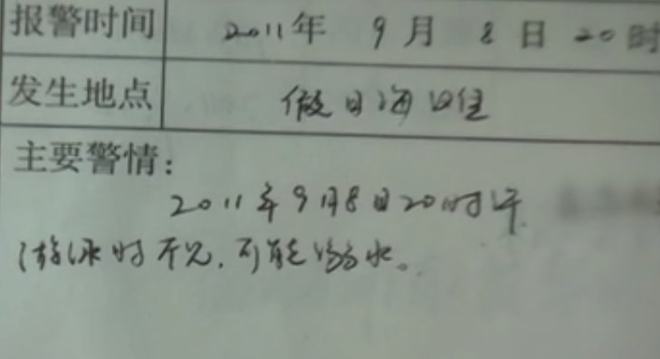 报警时间 2011年 9月 8日 20时
发生地点 假日海滩
主要警情：
2011年9月8日20时许
游泳时不见，可能溺水。